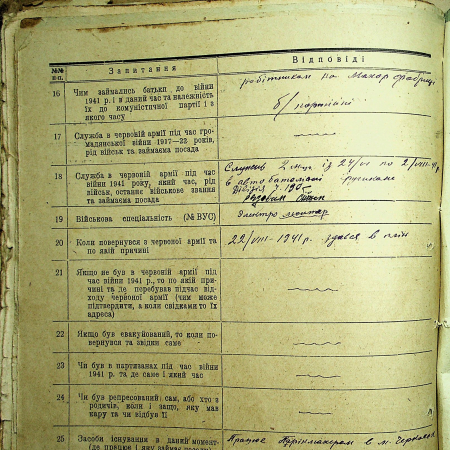 №№ п.п.
Запитання
Відповіді
16
Чим займались батьки до війни
1941 р. і в даний час та належність
їх до комуністичної партії і з
якого часу
робітником на Махор фабриці
б/партійні
17
Служба в червоній армії під час гро-
мадянської війни 1917—22 років,
рід військ та займаєма посада
18
Служба в червоній армії під час
війни 1941 року, який час, рід
військ, останнє військове звання
та займаєма посада
Служив 2 місяці із 24/VI по 2/VIII
в автобатальоні
дивізія 7. 190
19
Військова спеціальність (№ ВУС)
Электро монтар
20
Коли повернувся з червоної армії та
по якій причині
22/VIII-1941 р. здався в плін
21
Якщо не був в червоній армії під
час війни 1941 р., то по якій при-
чині та де перебував підчас від-
ходу червоної армії (чим може
підтвердити, а коли свідками то їх
адреса)
22
Якщо був евакуйований, то коли по-
вернувся та звідки саме
23
Чи був в партизанах під час війни
1941 р. та де саме і який час
24
Чи був репресований сам, або хто з
родичів, коли і защо, яку мав
кару та чи відбув її
25
Засоби існування в даний момент-
(де працює і яку займає посаду)
Працює в м. Черкаси